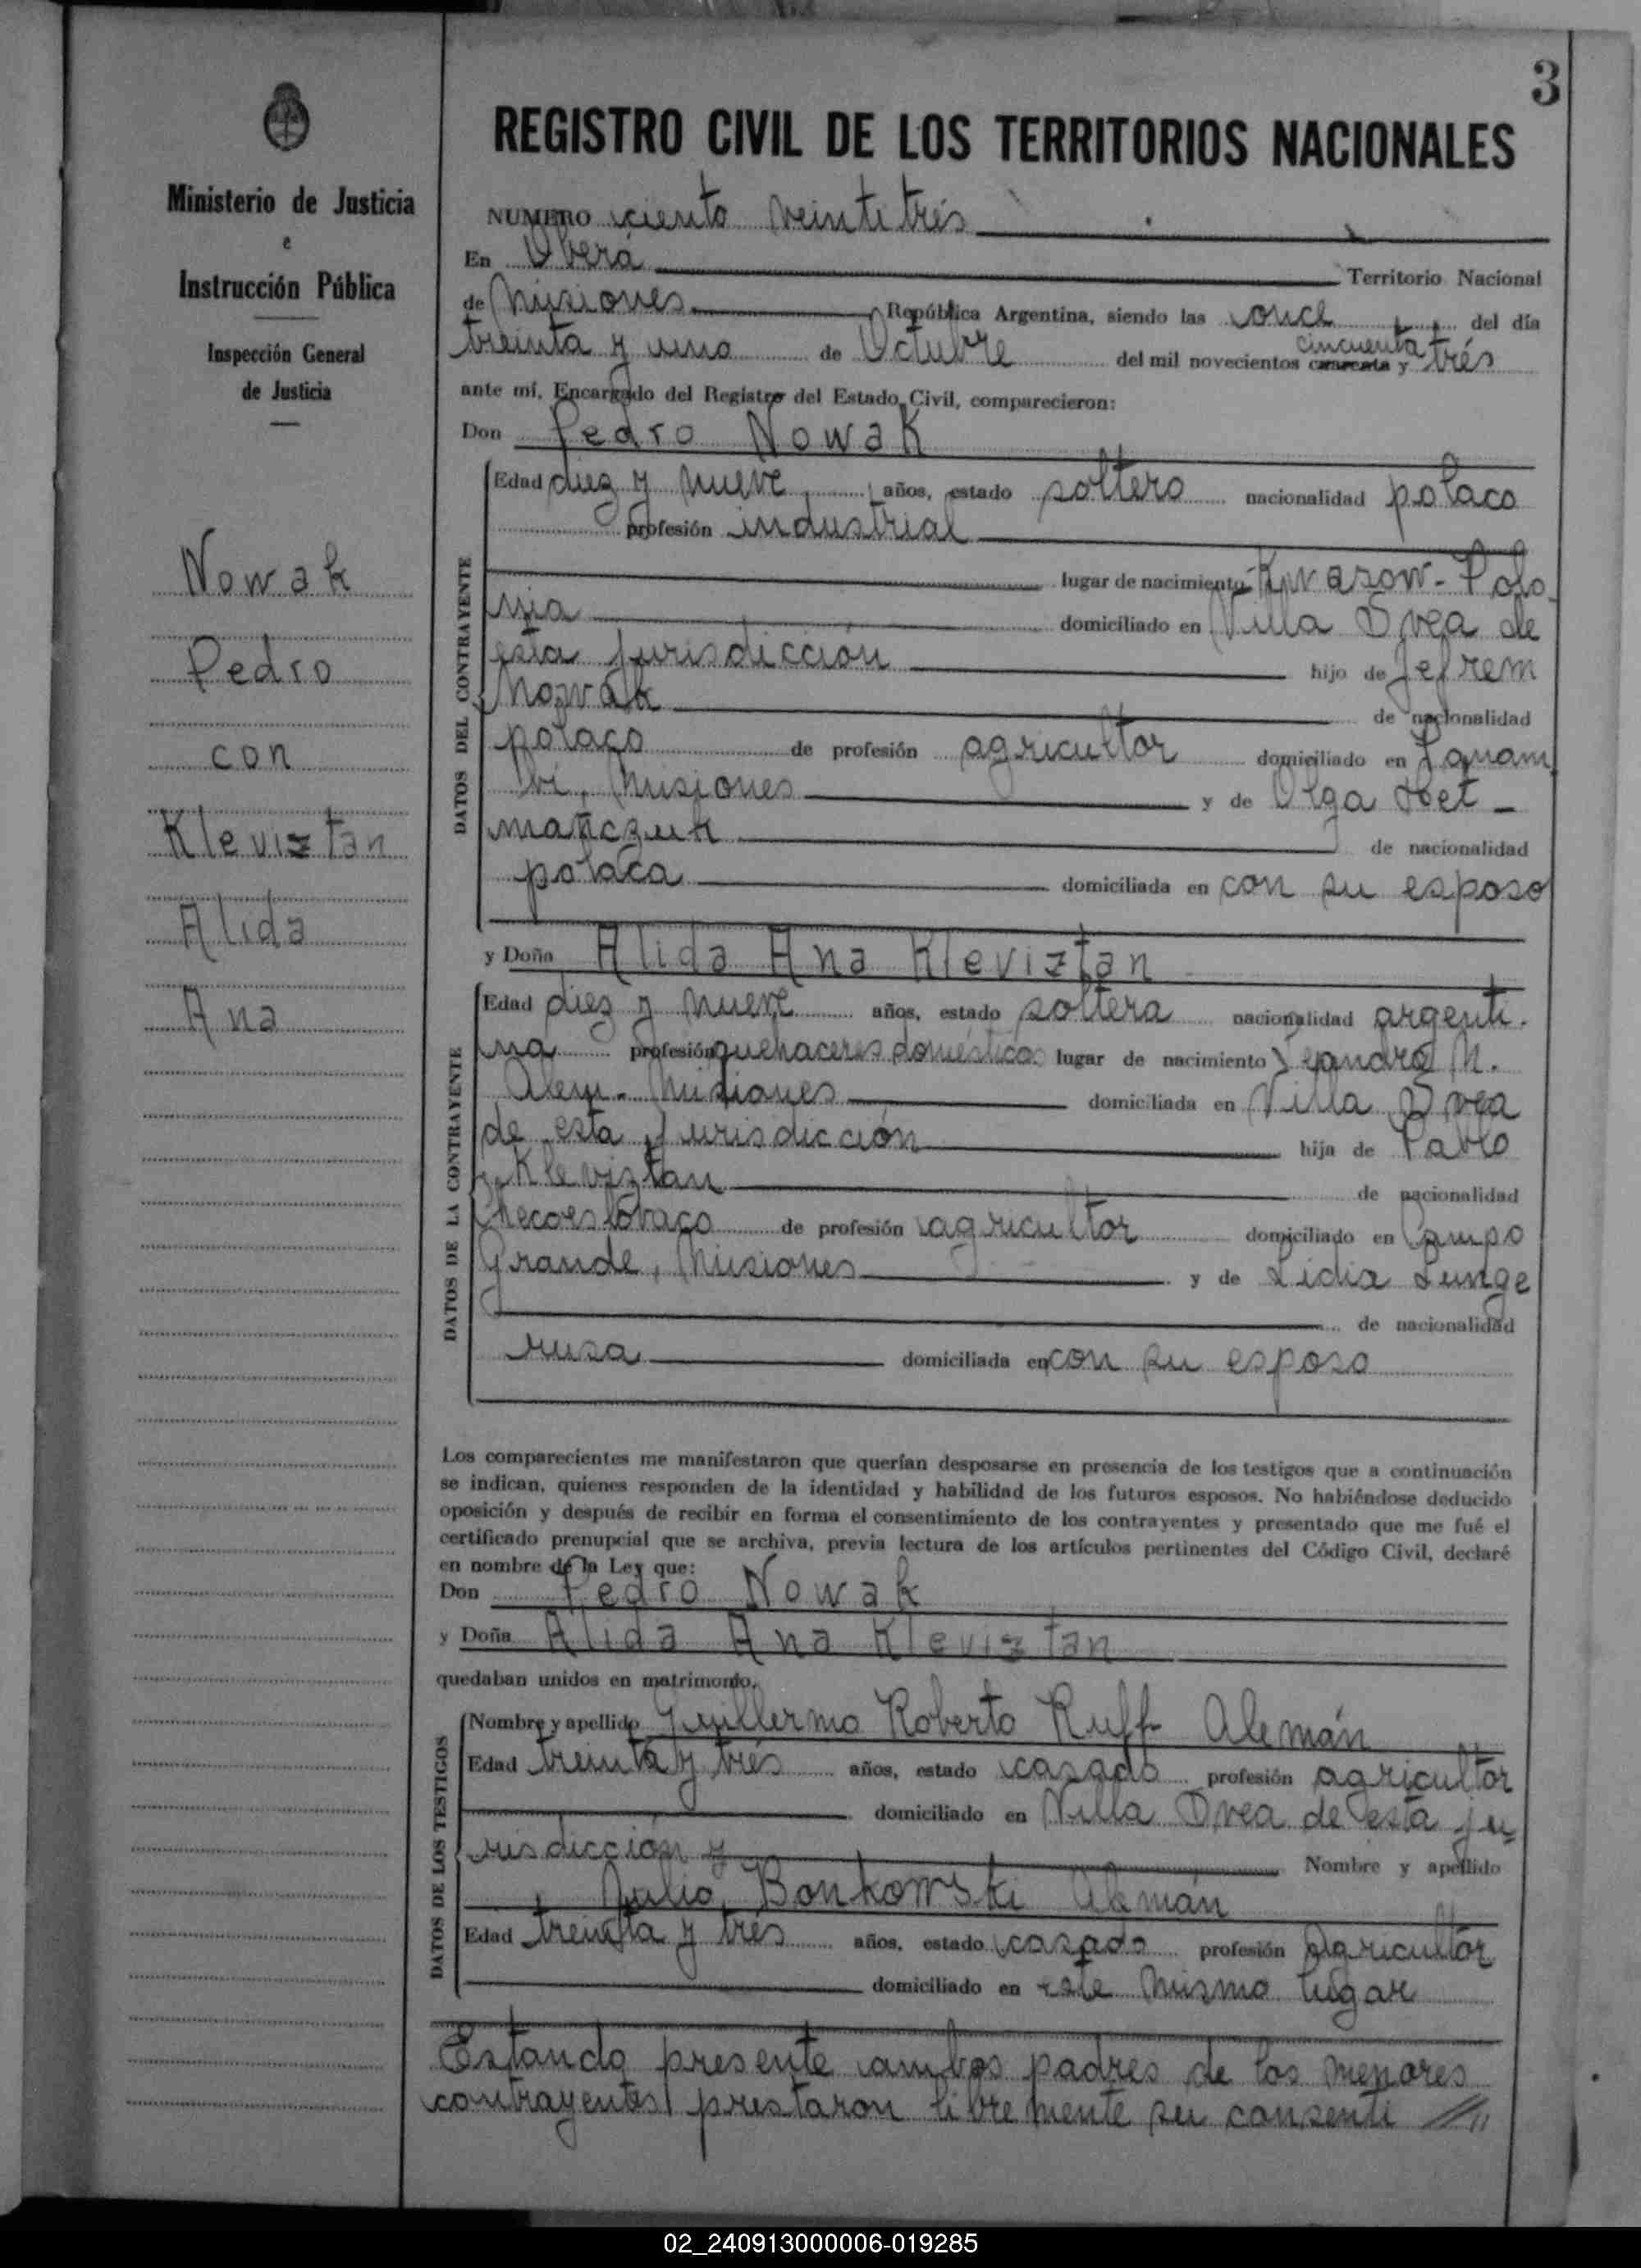 3
Ministerio de Justicia
e
Instrucción Pública
Inspección General
de Justicia
Nowak
Pedro
con
Kleviztan
Alida
Ana
REGISTRO CIVIL DE LOS TERRITORIOS NACIONALES
NUMERO ciento veintitrés
En Oberá Territorio Nacional
de Misiones República Argentina, siendo las once del día
treinta y uno de Octubre del mil novecientos cuarenta cincuenta y trés
ante mí, Encargado del Registro del Estado Civil, comparecieron:
Don Pedro Nowak
DATOS DEL CONTRAYENTE
Edad diez y nueve años, estado soltero nacionalidad polaco
profesión industrial
lugar de nacimiento Kwasow-Polo
nia domiciliado en Villa Svea de
esta jurisdicción hijo de Jefrem
Nowak de nacionalidad
polaco de profesión agricultor domiciliado en Panam
bí, Misiones y de Olga Het-
mañczuk de nacionalidad
polaca domiciliada en con su esposo
y Doña Alida Ana Kleviztan
DATOS DE LA CONTRAYENTE
Edad diez y nueve años, estado soltera nacionalidad argenti-
na profesión quehaceres domésticos lugar de nacimiento Leandro N.
Alem-Misiones domiciliada en Villa Svea
de esta jurisdicción hija de Pablo
Kleviztan de nacionalidad
checoeslovaco de profesión agricultor domiciliado en Campo
Grande, Misiones y de Lidia Lunge
de nacionalidad
rusa domiciliada en con su esposo
Los comparecientes me manifestaron que querían desposarse en presencia de los testigos que a continuación
se indican, quienes responden de la identidad y habilidad de los futuros esposos. No habiéndose deducido
oposición y después de recibir en forma el consentimiento de los contrayentes y presentado que me fué el
certificado prenupcial que se archiva, previa lectura de los artículos pertinentes del Código Civil, declaré
en nombre de la Ley que:
Don Pedro Nowak
y Doña Alida Ana Kleviztan
quedaban unidos en matrimonio.
DATOS DE LOS TESTIGOS
Nombre y apellido Guillermo Roberto Ruff Alemán
Edad treinta y trés años, estado casado profesión agricultor
domiciliado en Villa Svea de esta ju-
risdicción y Nombre y apellido
Julio Bonkowski Alemán
Edad treinta y trés años, estado casado profesión agricultor
domiciliado en este mismo lugar
Estando presente ambos padres de los menores
contrayentes prestaron libremente su consenti
02_240913000006-019285